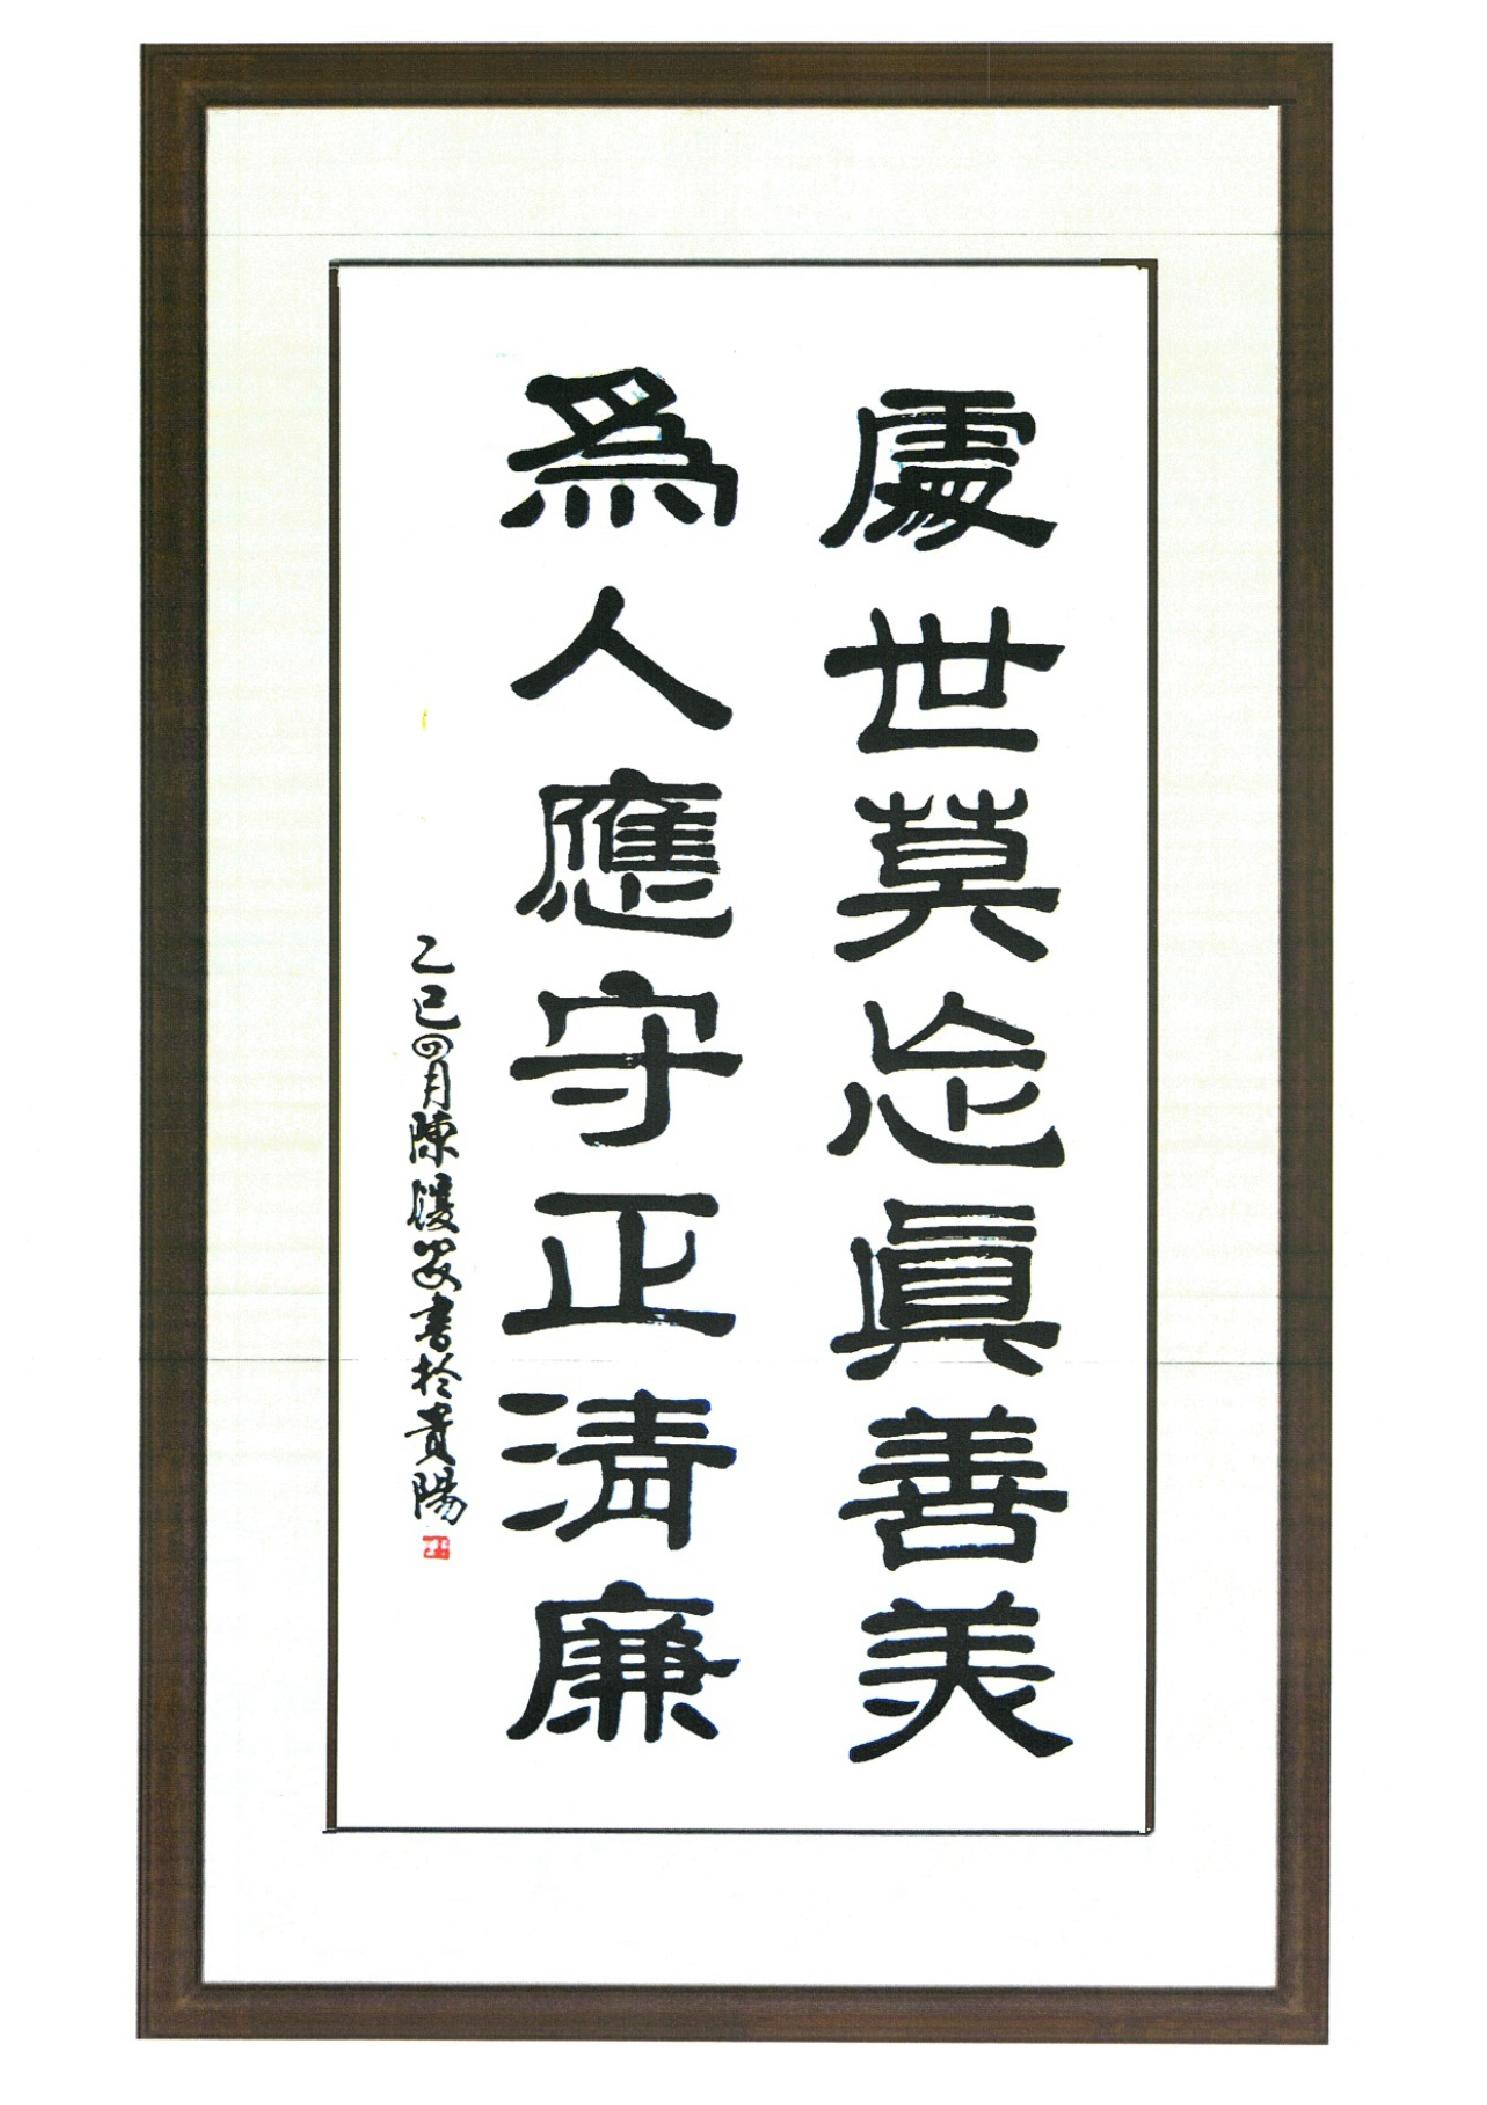 處世莫忘真善美
為人應守正清廉
乙巳四月陳媛安書於貴陽